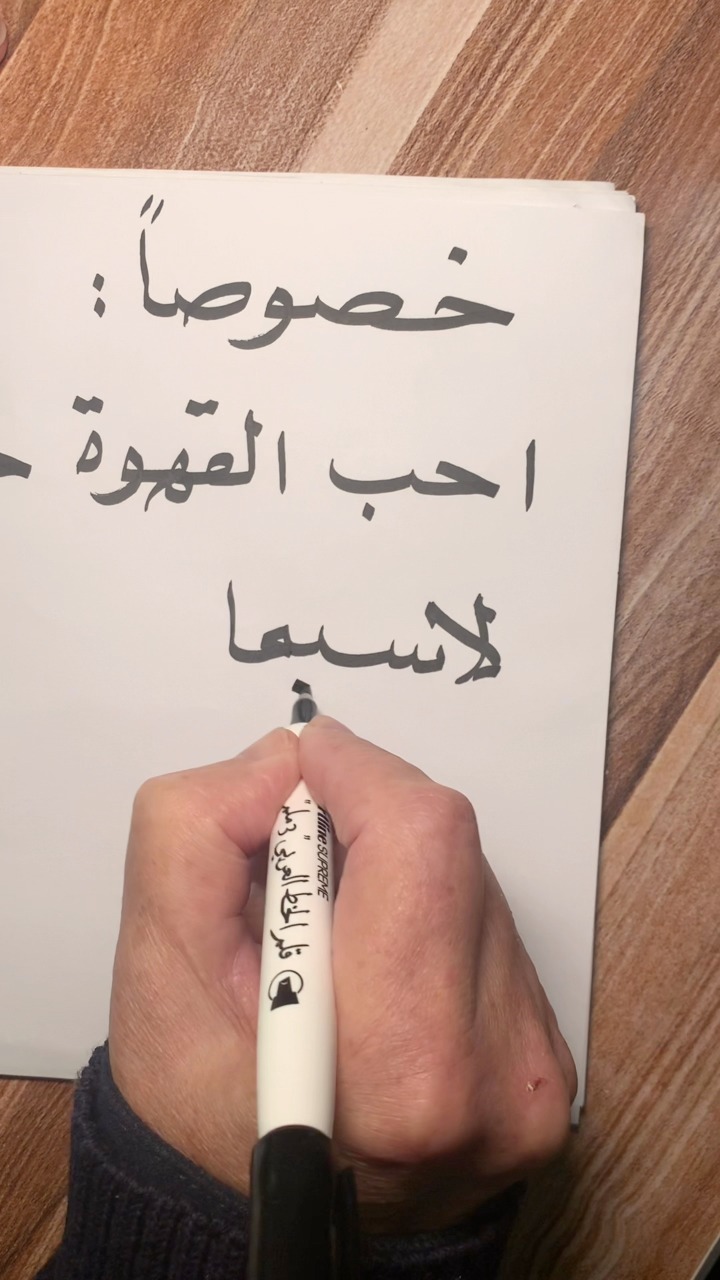 خصوصاً :
احب القهوة
لاسيما
Artline SUPREME
قلم الخط العربي "3 ملم"